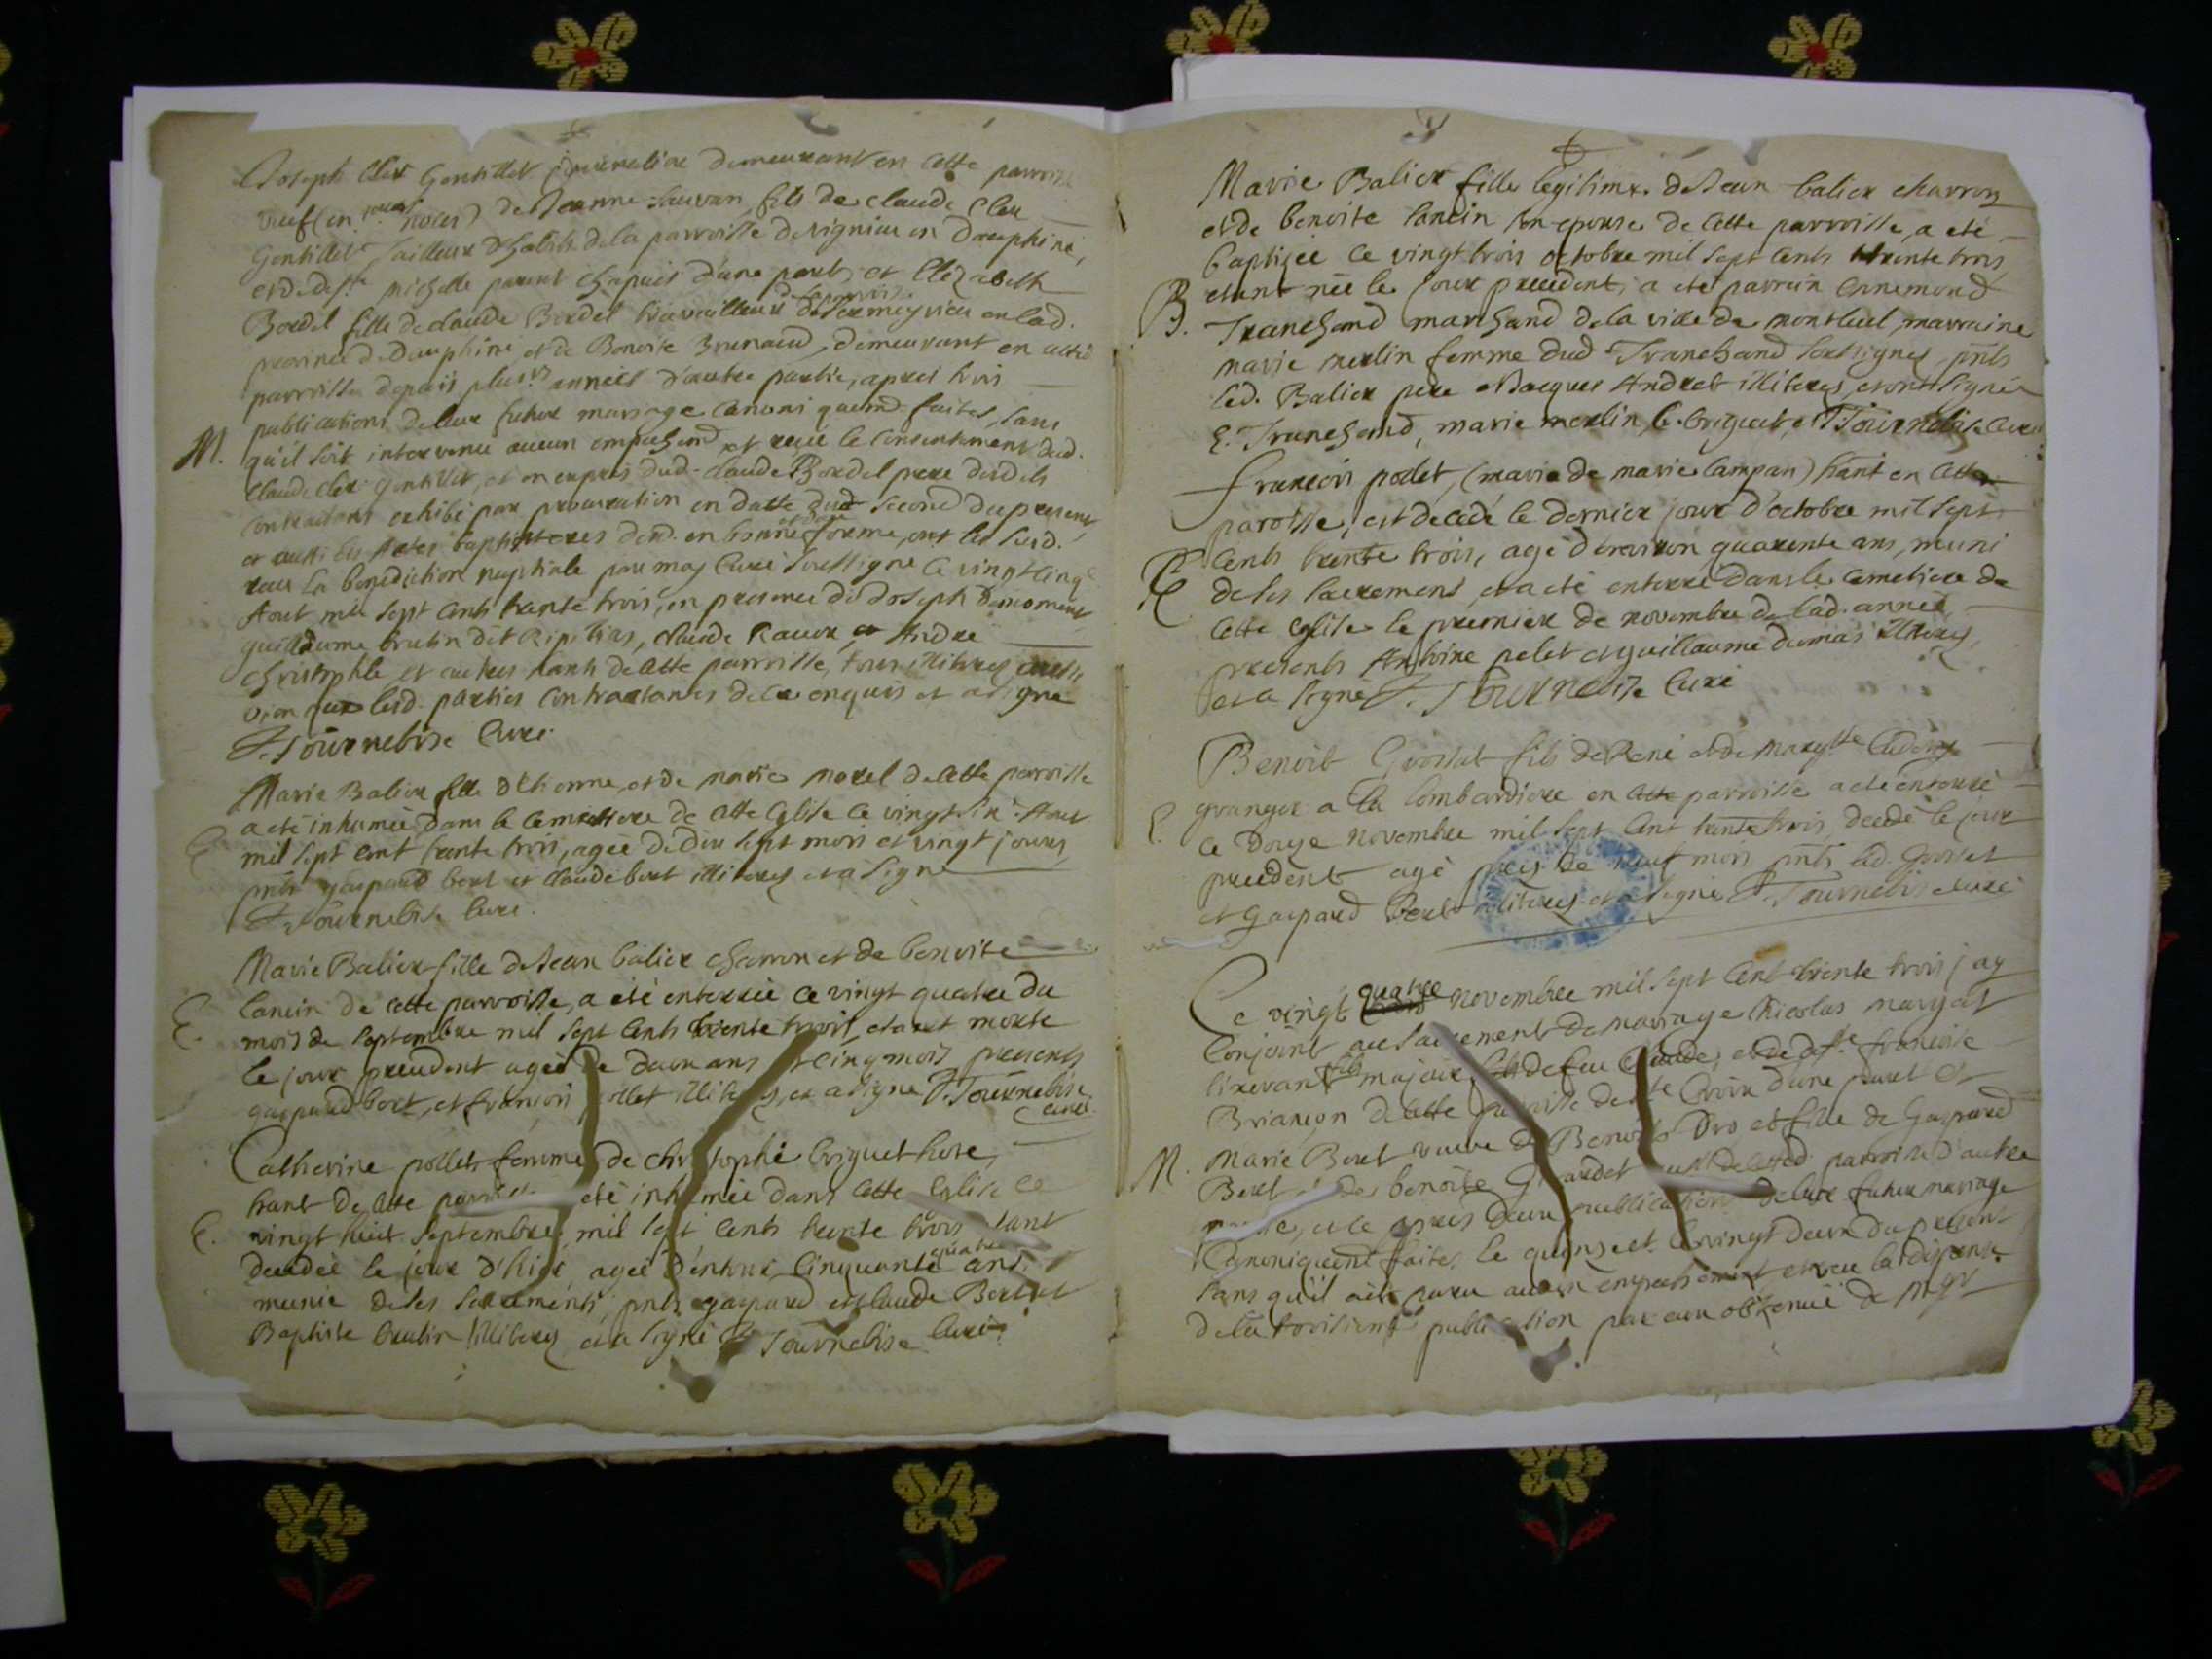 Joseph Cler Gentillet journalier demeurant en cette parroisse
veuf (en noces) de Jeanne Sauvan, fils de claude Cler
Gentillet Tailleur d'habits de la parroisse de vignieu en Dauphiné,
et de michelle parent Chapuis d'une part, et Elizabeth
Bordel fille de claude Bordel travailleur de la parroisse de Sermeyrieu en lad.
province de Dauphiné et de Benoite Brunaud, demeurant en cette
parroisse depuis plus.rs années d'autre partie, apres trois
publications de leur futur mariage canoniquem.t faites, sans
M. qu'il soit intervenu aucun empechem.t et reçu le Consentement dud.
Claude Cler Gentillet, et en expres dud. claude Bordel pere desdits
contractans exhibé par procuration en datte du second du present,
et aussi les Actes baptisteres desd. en bonne et due forme, ont les susd.
recu la benediction nuptiale par moy Curé soussigné ce vingt cinq
Aout mil sept cents trente trois, en presence de Joseph
guillaume brutin dit Ripitias, claude Raur et André
christophle et autres hants de cette parroisse, tous illiteres aussi
bien que lesd. parties contractantes de ce enquis et a signé
F. Tournebise Curé.
Marie Balier fille d'Etienne, et de marie morel de cette parroisse
a eté inhumée dans le cemettiere de cette Eglise ce vingt six.e Aout
E. mil sept cent trente trois, agée de dix sept mois et vingt jours,
pnts gaspard bert et claude bert illiteres et a signé
F. Tournebise Curé.
Marie Balier fille de Jean balier charron et de benoite
E. lancin de cette parroisse, a eté enterrée ce vingt quatre du
mois de septembre mil sept cents trente trois, etant morte
le jour precedent agée de deux ans et cinq mois, presents
gaspard bert, et françois pollet illiteres, et a signé F. Tournebise
Curé.
Catherine pollet femme de christophe briguet hoste,
hant de cette parroisse a eté inhumée dans cette Eglise ce
E. vingt huit septembre mil sept cents trente trois etant
decedée le jour d'hier, agée d'entour cinquante quatre ans,
munie de ses sacrements, pnts gaspard et claude Bert et
Baptiste brutin illiteres et a signé F. Tournebise Curé.
Marie Balier fille legitime de Jean balier charron
et de benoite lancin son epouse de cette parroisse, a eté
baptisée ce vingt trois octobre mil sept cents trente trois,
B. etant née le jour precedent, a eté parrain Ennemond
Tranchand marchand de la ville de montluel, marraine
marie merlin femme dud. Tranchand soussignés, pnts
led. Balier pere et Jacques Andret illiteres, et ont signé
E. Tranchand, marie merlin, C. briguet, F. Tournebise Curé
françois pollet, (mari de marie lampan) hant en cette
paroisse, est decedé le dernier jour d'octobre mil sept
E cents trente trois, agé d'environ quarente ans, muni
de ses sacremens, et a eté enterré dans le cemetiere de
cette eglise le premier de novembre de lad. année,
presents Antoine pelet et guillaume dumas illiteres,
et a signé F. Tournebise Curé
Benoit Grosset fils de René et de Marg.tte
granger a la lombardiere en cette parroisse a eté enterré
E. ce douze novembre mil sept cent trente trois, decedé le jour
precedent agé pres de neuf mois pnts led. Grosset
et Gaspard Bert illiteres et a signé F. Tournebise Curé
Ce vingt quatre novembre mil sept cent trente trois j'ay
conjoint au sacrement de mariage Nicolas margat
tixerant fils majeur de feu Claude, et de deff.te françoise
Briançon de cette parroisse de Ste Croix d'une part et
M. Marie Beret veuve de Benoit Dro et fille de Gaspard
Beret et de benoite Girardet aussi de cetted. parroisse d'autre
partie, et ce apres deux publications de leur futur mariage
Canoniquem.t faites, le quinze et le vingt deux du present
sans qu'il ait paru aucun empechement et veu la dispense
de la troisieme publication par eux obtenue de Mgr